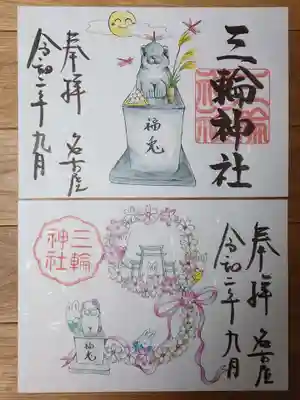 三輪神社
福兎
奉拝
名古屋
令和二年九月
奉拝
名古屋
令和二年九月
三輪
神社
福兎